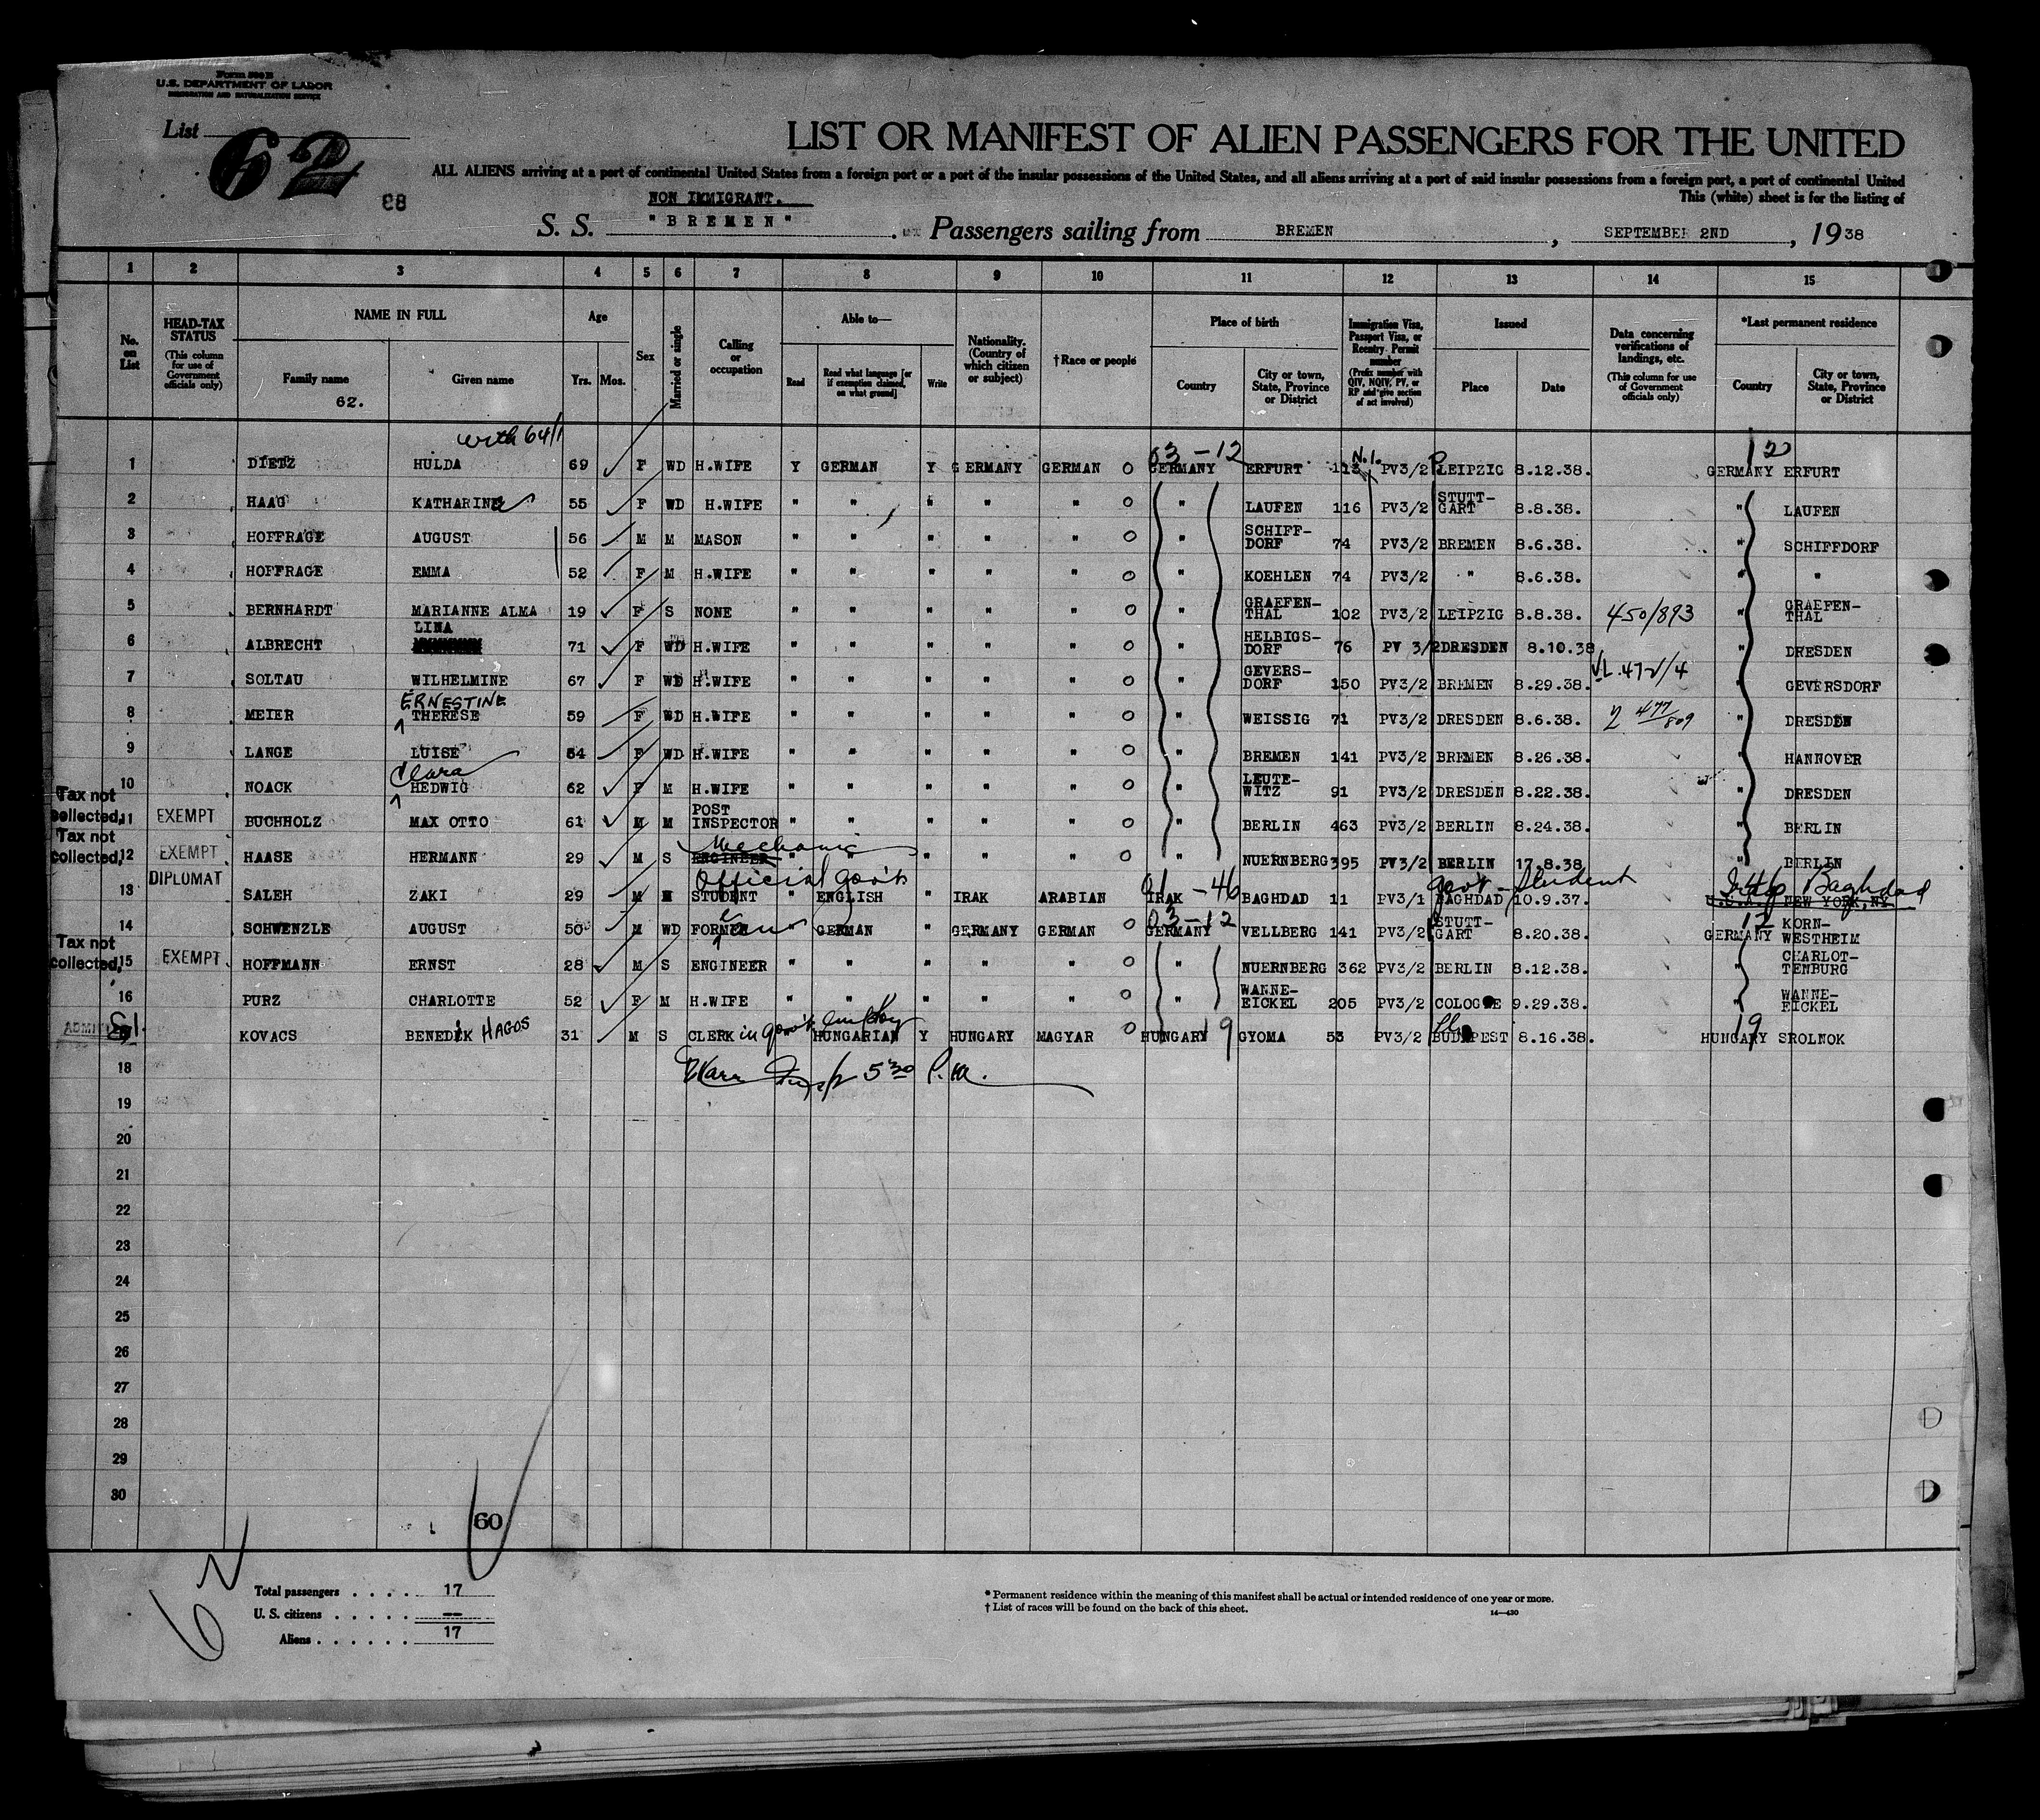 Form 500 B
U.S. DEPARTMENT OF LABOR
IMMIGRATION AND NATURALIZATION SERVICE
List 62
LIST OR MANIFEST OF ALIEN PASSENGERS FOR THE UNITED
ALL ALIENS arriving at a port of continental United States from a foreign port or a port of the insular possessions of the United States, and all aliens arriving at a port of said insular possessions from a foreign port, a port of continental United
This (white) sheet is for the listing of
88
NON IMMIGRANT.
S. S. "BREMEN" Passengers sailing from BREMEN, SEPTEMBER 2ND, 1938
1 2 3 4 5 6 7 8 9 10 11 12 13 14 15
No. on List
HEAD-TAX STATUS (This column for use of Government officials only)
NAME IN FULL
Family name
Given name
62.
Age
Yrs. Mos.
Sex
Married or single
Calling or occupation
Able to—
Read
Read what language [or if exemption claimed, on what ground]
Write
Nationality. (Country of which citizen or subject)
†Race or people
Place of birth
Country
City or town, State, Province or District
Immigration Visa, Passport Visa, or Reentry Permit number (Prefix number with QIV, NQIV, PV, or RP and give section of act involved)
Issued
Place
Date
Data concerning verifications of landings, etc. (This column for use of Government officials only)
*Last permanent residence
Country
City or town, State, Province or District
with 64/1
03-12 N.I. P 12
1 DIETZ HULDA 69 F WD H.WIFE Y GERMAN Y GERMANY GERMAN O GERMANY ERFURT 113 PV3/2 LEIPZIG 8.12.38. GERMANY ERFURT
2 HAAG KATHARINE 55 F WD H.WIFE " " " " " O " LAUFEN 116 PV3/2 STUTT-GART 8.8.38. " LAUFEN
3 HOFFRAGE AUGUST 56 M M MASON " " " " " O " SCHIFF-DORF 74 PV3/2 BREMEN 8.6.38. " SCHIFFDORF
4 HOFFRAGE EMMA 52 F M H.WIFE " " " " " O " KOEHLEN 74 PV3/2 " 8.6.38. " "
5 BERNHARDT MARIANNE ALMA 19 F S NONE " " " " " O " GRAEFEN-THAL 102 PV3/2 LEIPZIG 8.8.38. 450/893 " GRAEFEN-THAL
6 ALBRECHT LINA 71 F WD H.WIFE " " " " " O " HELBIGS-DORF 76 PV 3/2 DRESDEN 8.10.38 " DRESDEN
7 SOLTAU WILHELMINE 67 F WD H.WIFE " " " " " O " GEVERS-DORF 150 PV3/2 BREMEN 8.29.38. " GEVERSDORF
8 MEIER ERNESTINE THERESE 59 F WD H.WIFE " " " " " O " WEISSIG 71 PV3/2 DRESDEN 8.6.38. 477/809 " DRESDEN
9 LANGE LUISE 64 F WD H.WIFE " " " " " O " BREMEN 141 PV3/2 BREMEN 8.26.38. " HANNOVER
10 NOACK Clara HEDWIG 62 F M H.WIFE " " " " " O " LEUTE-WITZ 91 PV3/2 DRESDEN 8.22.38. " DRESDEN
Tax not collected, 11 EXEMPT BUCHHOLZ MAX OTTO 61 M M POST INSPECTOR " " " " " O " BERLIN 463 PV3/2 BERLIN 8.24.38. " BERLIN
Tax not collected, 12 EXEMPT HAASE HERMANN 29 M S ENGINEER Mechanic " " " " " O " NUERNBERG 395 PV3/2 BERLIN 17.8.38 " BERLIN
Official gov't 91-46 gov't - Student 46 Baghdad
13 DIPLOMAT SALEH ZAKI 29 M M STUDENT " ENGLISH " IRAK ARABIAN IRAK BAGHDAD 11 PV3/1 BAGHDAD 10.9.37. U.S.A. NEW YORK, NY
03-12 12
14 SCHWENZLE AUGUST 50 M WD FORMEN " GERMAN " GERMANY GERMAN O GERMANY VELLBERG 141 PV3/2 STUTT-GART 8.20.38. GERMANY KORN-WESTHEIM
Tax not collected, 15 EXEMPT HOFFMANN ERNST 28 M S ENGINEER " " " " " O " NUERNBERG 362 PV3/2 BERLIN 8.12.38. " CHARLOT-TENBURG
16 PURZ CHARLOTTE 52 F M H.WIFE " " " " " O " WANNE-EICKEL 205 PV3/2 COLOGNE 9.29.38. " WANNE-EICKEL
KOVACS BENEDEK HAGOS 31 M S CLERK in gov't employ HUNGARIAN Y HUNGARY MAGYAR O HUNGARY 19 GYOMA 53 PV3/2 BUDAPEST 8.16.38. HUNGARY 19 SROLNOK
18 5 30 P.M.
19
20
21
22
23
24
25
26
27
28
29
30
60
62
Total passengers . . . . 17
U. S. citizens . . . . . --
Aliens . . . . . . 17
* Permanent residence within the meaning of this manifest shall be actual or intended residence of one year or more.
† List of races will be found on the back of this sheet.
14—430